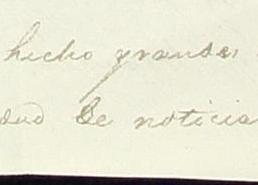 hecho grandes
dad de noticia